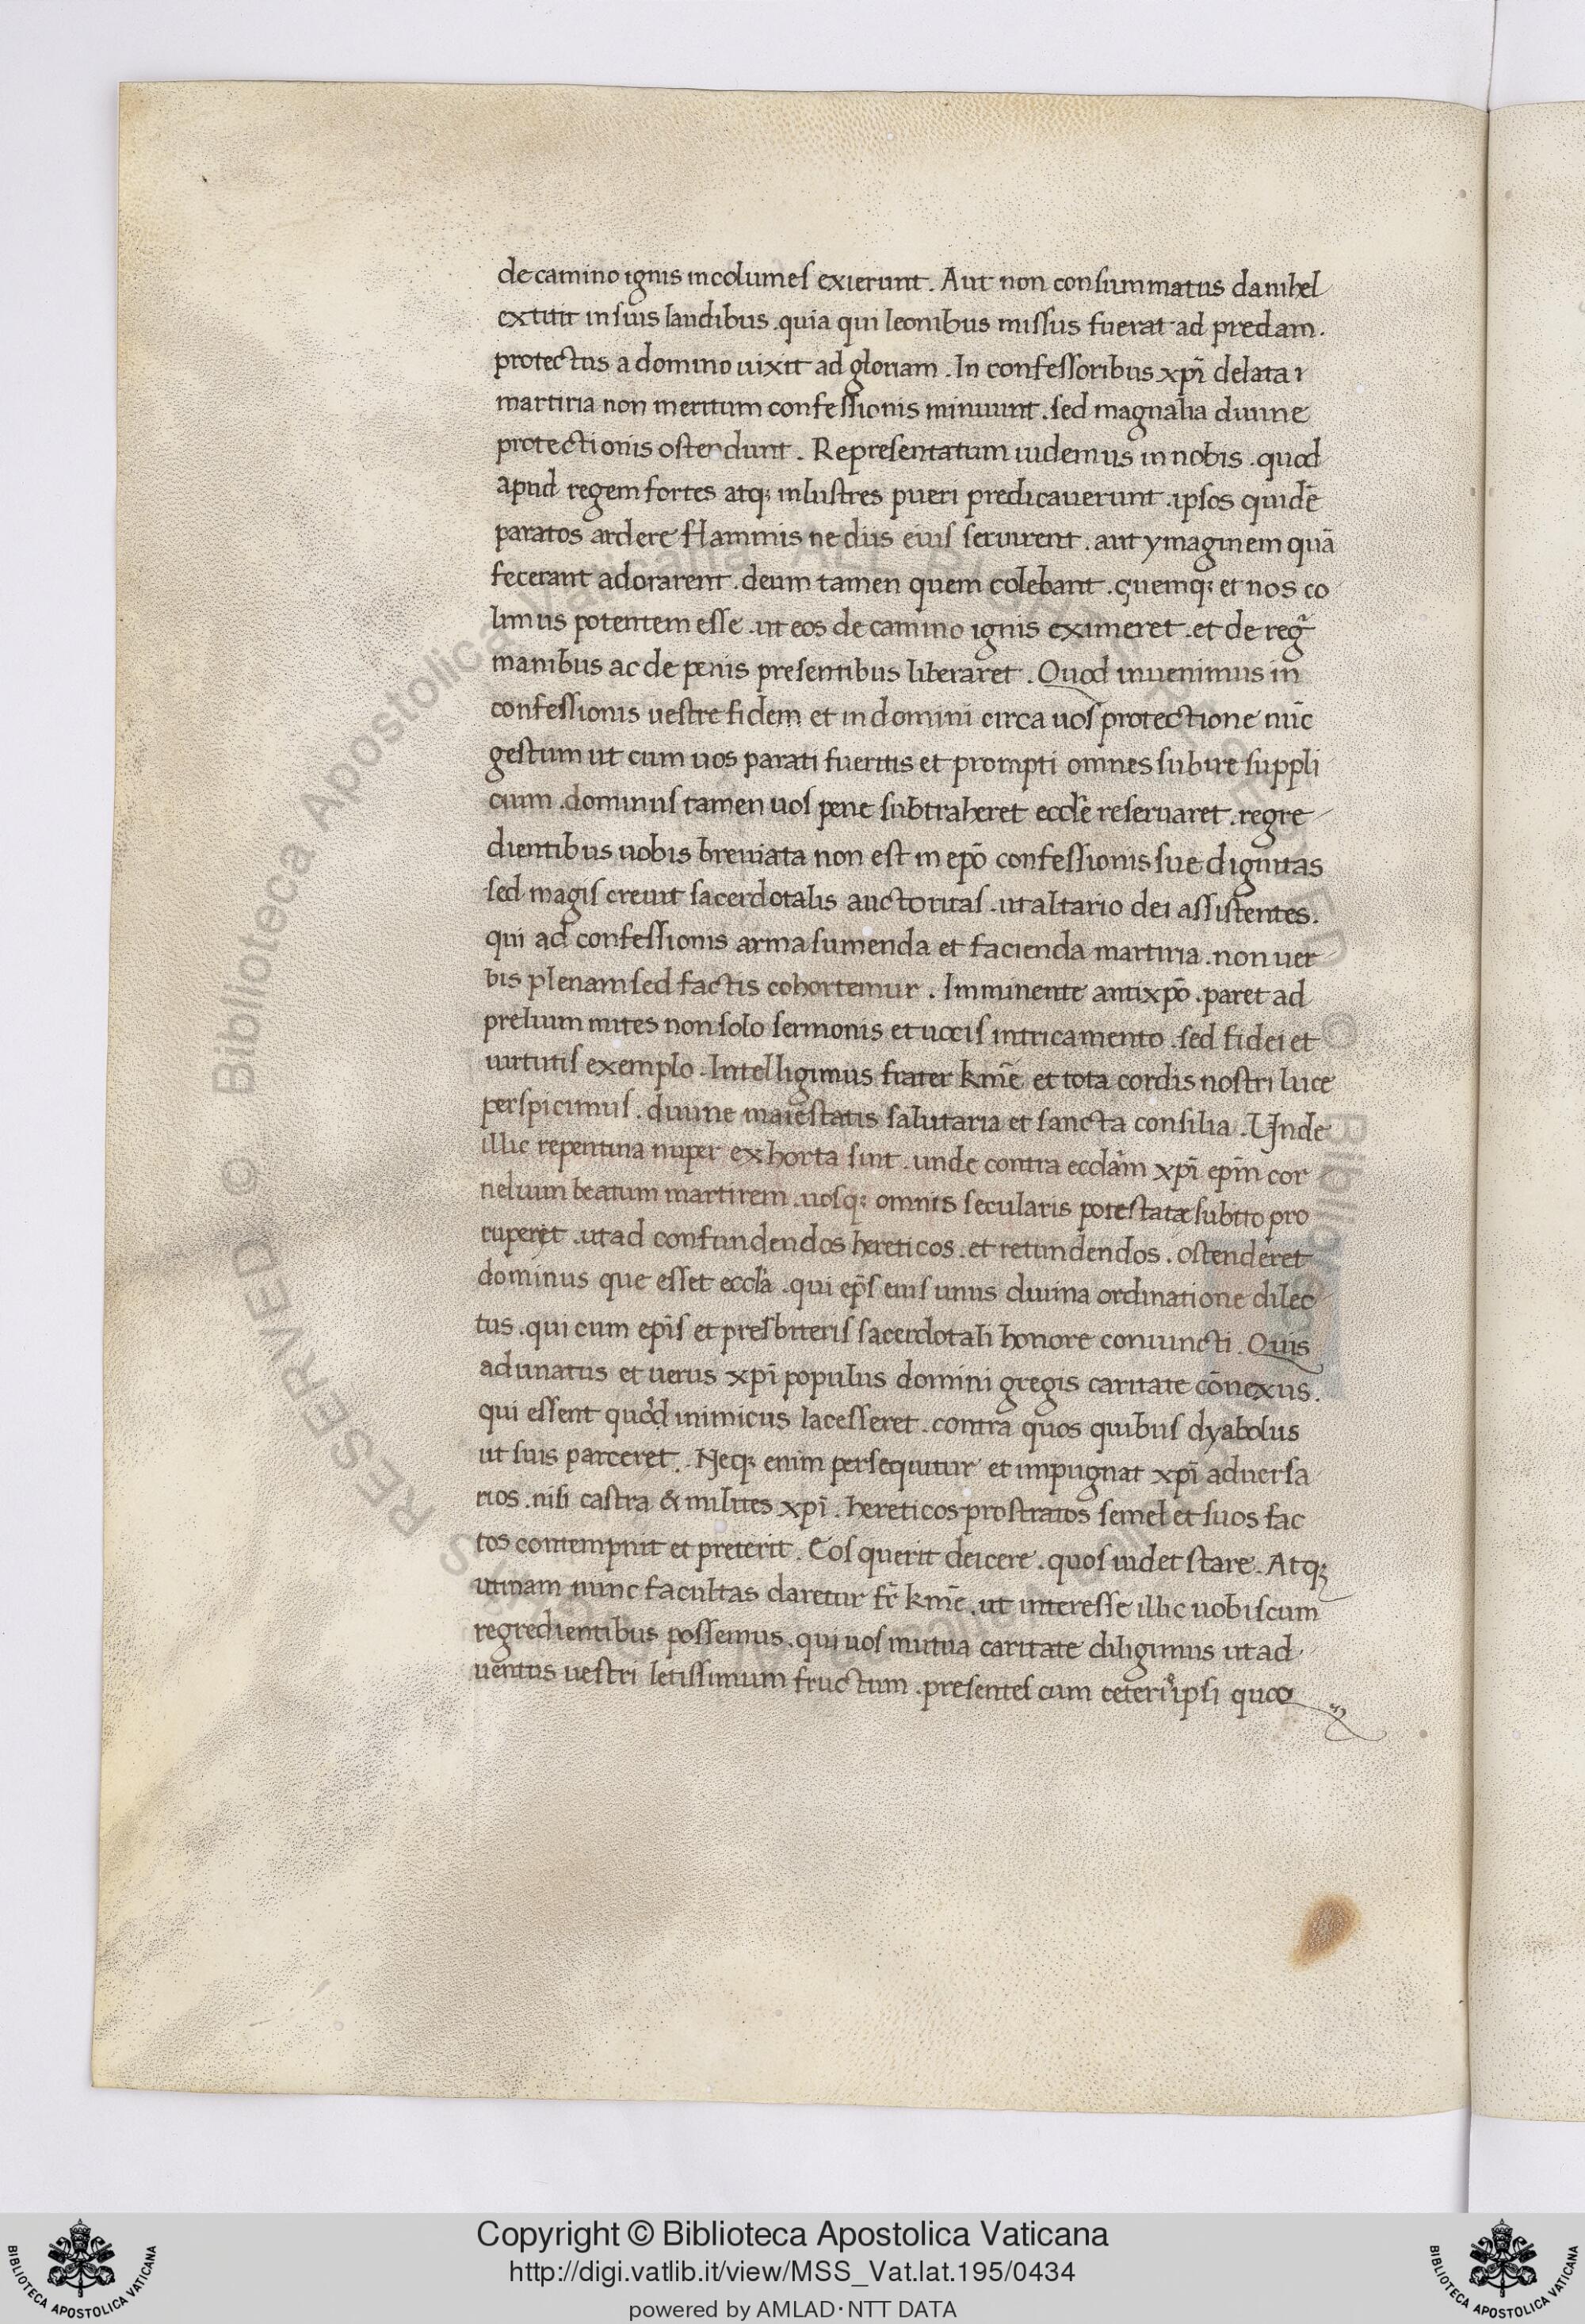 de camino ignis incolumes exierunt. Aut non consummatus danihel
extitit in suis laudibus. quia qui leonibus missus fuerat ad predam.
protectus a domino uixit ad gloriam. In confessoribus xpi̅ delata
martiria non meritum confessionis minuunt. sed magnalia diuine
protectionis ostendunt. Representatum uidemus in nobis. quod
apud regem fortes atq; inlustres pueri predicauerunt. ipsos quide̅
paratos ardere flammis ne diis eius seruirent. aut ymaginem qua̅
fecerant adorarent. deum tamen quem colebant. quemq; et nos co
limus potentem esse. ut eos de camino ignis eximeret. et de
manibus ac de penis presentibus liberaret. Quod inuenimus in
confessionis uestre fidem et in domini circa uos protectione nu̅c
gestum ut cum uos parati fueritis et prompti omnes subire suppli
cium. dominus tamen uos pene subtraheret eccl̅e reseruaret. regre
dientibus uobis breuiata non est in epo̅ confessionis sue dignitas
sed magis creuit sacerdotalis auctoritas. ut altario dei assistentes.
qui ad confessionis arma sumenda et facienda martiria. non uer
bis plenam sed factis cohortemur. Imminente antixpo̅. paret ad
prelium mites non solo sermonis et uocis intricamento. sed fidei et
uirtutis exemplo. Intelligimus frater kme̅ et tota cordis nostri luce
perspicimus. diuine maiestatis salutaria et sancta consilia. Unde
illic repentina nuper exhorta sint. unde contra eccl̅am xpi̅ epm̅ cor
nelium beatum martirem. uosq; omnis secularis potestatæ subito pro
ruperet. ut ad confundendos hereticos. et retundendos. ostenderet
dominus que esset eccl̅a. qui ep̅s eius unus diuina ordinatione dilec
tus. qui cum epi̅s et presbiteris sacerdotali honore coniuncti. Quis
adunatus et uerus xpi̅ populus domini gregis caritate co̅nexus.
qui essent quod inimicus lacesseret. contra quos quibus dyabolus
ut suis parceret. Neq; enim persequitur et impugnat xpi̅ aduersa
rios. nisi castra & milites xpi̅. hereticos prostratos semel et suos fac
tos contempnit et preterit. Eos querit deicere. quos uidet stare. Atq;
utinam nunc facultas daretur fr̅ kme̅. ut interesse illic uobiscum
regredientibus possemus. qui uos mutua caritate diligimus ut ad
uentus uestri letissimum fructum. presentes cum ipsi quoq
Copyright © Biblioteca Apostolica Vaticana
http://digi.vatlib.it/view/MSS_Vat.lat.195/0434
powered by AMLAD·NTT DATA
BIBLIOTECA APOSTOLICA VATICANA
BIBLIOTECA APOSTOLICA VATICANA